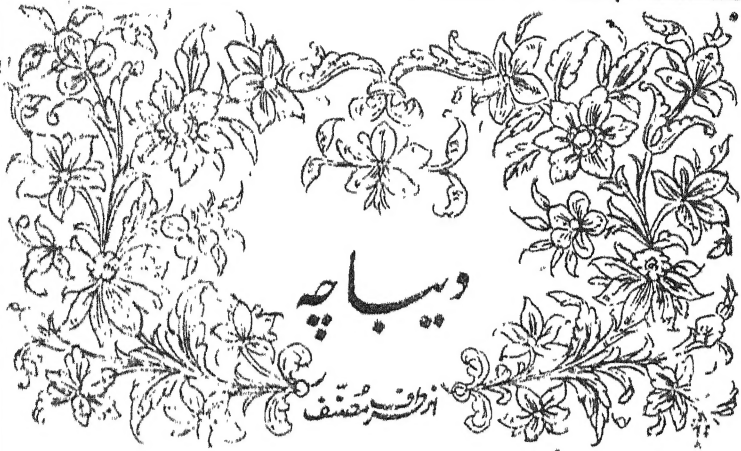 دیباچہ
از طرف مُصنّف